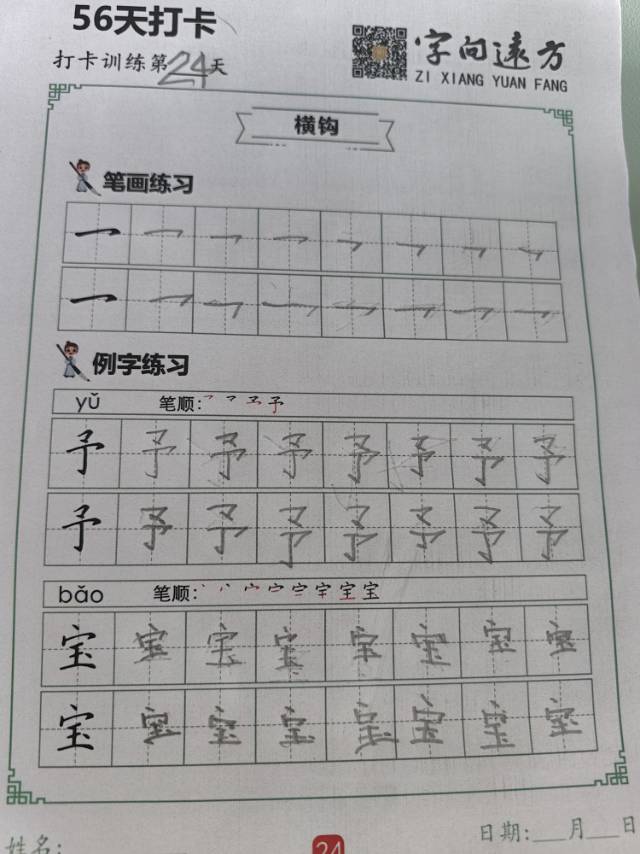 56天打卡
打卡训练第24天
字向远方
ZI XIANG YUAN FANG
横钩
笔画练习
一 一 一 一 一 一 一 一
一 一 一 一 一 一 一 一
例字练习
yǔ 笔顺: 予
予 予 予 予 予 予 予 予
予 予 予 予 予 予 予 予
bǎo 笔顺: 宝 宝
宝 宝 宝 宝 宝 宝 宝 宝
宝 宝 宝 宝 宝 宝 宝 宝
姓名:
24
日期:___月___日